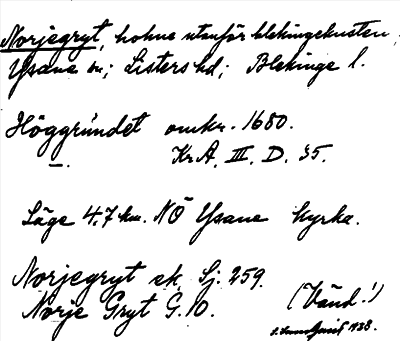 Norjegryt, holme utanför blekingekusten,
Ysane sn; Listers hd; Blekinge l.
Höggrundet omkr. 1680.
— . Kr.A. III. D. 35.
Läge 4,7 km. NÖ Ysane kyrka.
Norjegryt ek Sj. 259.
Norje Gryt G. 10. (Vänd!)
1938.